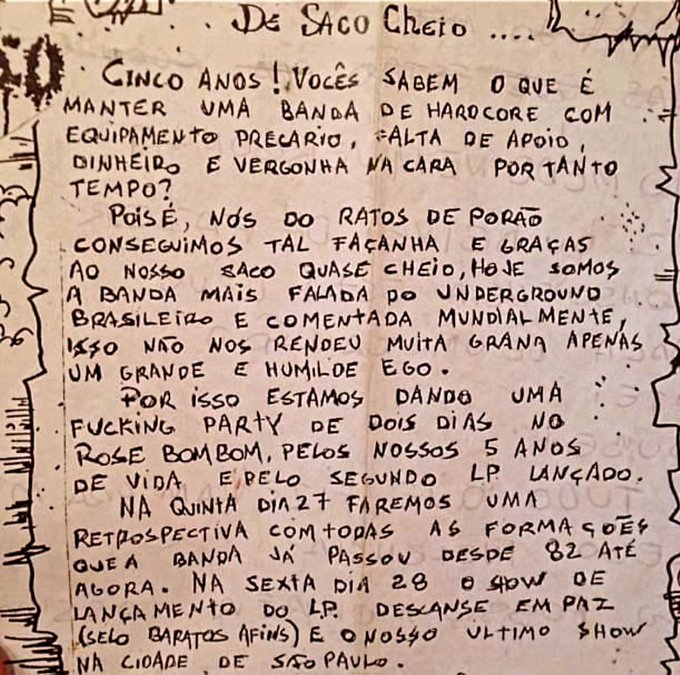 DE SACO CHEIO ....
CINCO ANOS! VOCÊS SABEM O QUE É
MANTER UMA BANDA DE HARDCORE COM
EQUIPAMENTO PRECARIO, FALTA DE APOIO,
DINHEIRO E VERGONHA NA CARA POR TANTO
TEMPO?
POIS É, NÓS DO RATOS DE PORÃO
CONSEGUIMOS TAL FAÇANHA E GRAÇAS
AO NOSSO SACO QUASE CHEIO, HOJE SOMOS
A BANDA MAIS FALADA DO UNDERGROUND
BRASILEIRO E COMENTADA MUNDIALMENTE,
ISSO NÃO NOS RENDEU MUITA GRANA APENAS
UM GRANDE E HUMILDE EGO.
POR ISSO ESTAMOS DANDO UMA
FUCKING PARTY DE DOIS DIAS NO
ROSE BOMBOM, PELOS NOSSOS 5 ANOS
DE VIDA E PELO SEGUNDO LP. LANÇADO.
NA QUINTA DIA 27 FAREMOS UMA
RETROSPECTIVA COM TODAS AS FORMAÇOES
QUE A BANDA JÁ PASSOU DESDE 82 ATÉ
AGORA. NA SEXTA DIA 28 O SHOW DE
LANÇAMENTO DO LP. DESCANSE EM PAZ
(SELO BARATOS AFINS) E O NOSSO ULTIMO SHOW
NA CIDADE DE SÃO PAULO.